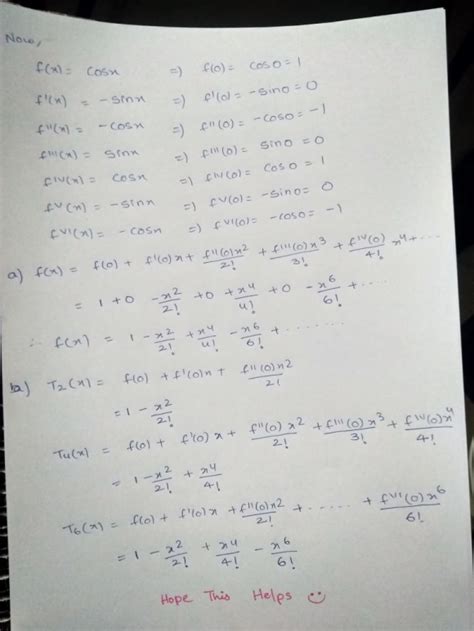 Now,
f(x) = cosx => f(0) = cos0 = 1
f'(x) = -sinx => f'(0) = -sin0 = 0
f''(x) = -cosx => f''(0) = -cos0 = -1
f'''(x) = sinx => f'''(0) = sin0 = 0
fIV(x) = cosx => fIV(0) = cos0 = 1
fV(x) = -sinx => fV(0) = -sin0 = 0
fVI(x) = -cosx => fVI(0) = -cos0 = -1
a) f(x) = f(0) + f'(0)x + f''(0)x²/2! + f'''(0)x³/3! + fIV(0)/4! x⁴ + ....
= 1 + 0 - x²/2! + 0 + x⁴/4! + 0 - x⁶/6! + ....
∴ f(x) = 1 - x²/2! + x⁴/4! - x⁶/6! + .......
b) T₂(x) = f(0) + f'(0)x + f''(0)x²/2!
= 1 - x²/2!
T₄(x) = f(0) + f'(0)x + f''(0)x²/2! + f'''(0)x³/3! + fIV(0)x⁴/4!
= 1 - x²/2! + x⁴/4!
T₆(x) = f(0) + f'(0)x + f''(0)x²/2! + ..... + fVI(0)x⁶/6!
= 1 - x²/2! + x⁴/4! - x⁶/6!
Hope This Helps